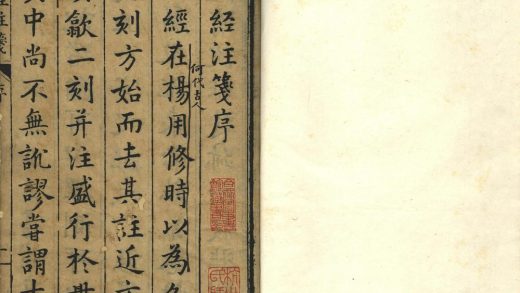 經注箋序
何代古人
經在楊用修時以為
刻方始而去其註近
歙二刻并注盛行於
中尚不無訛謬嘗謂
注箋
序